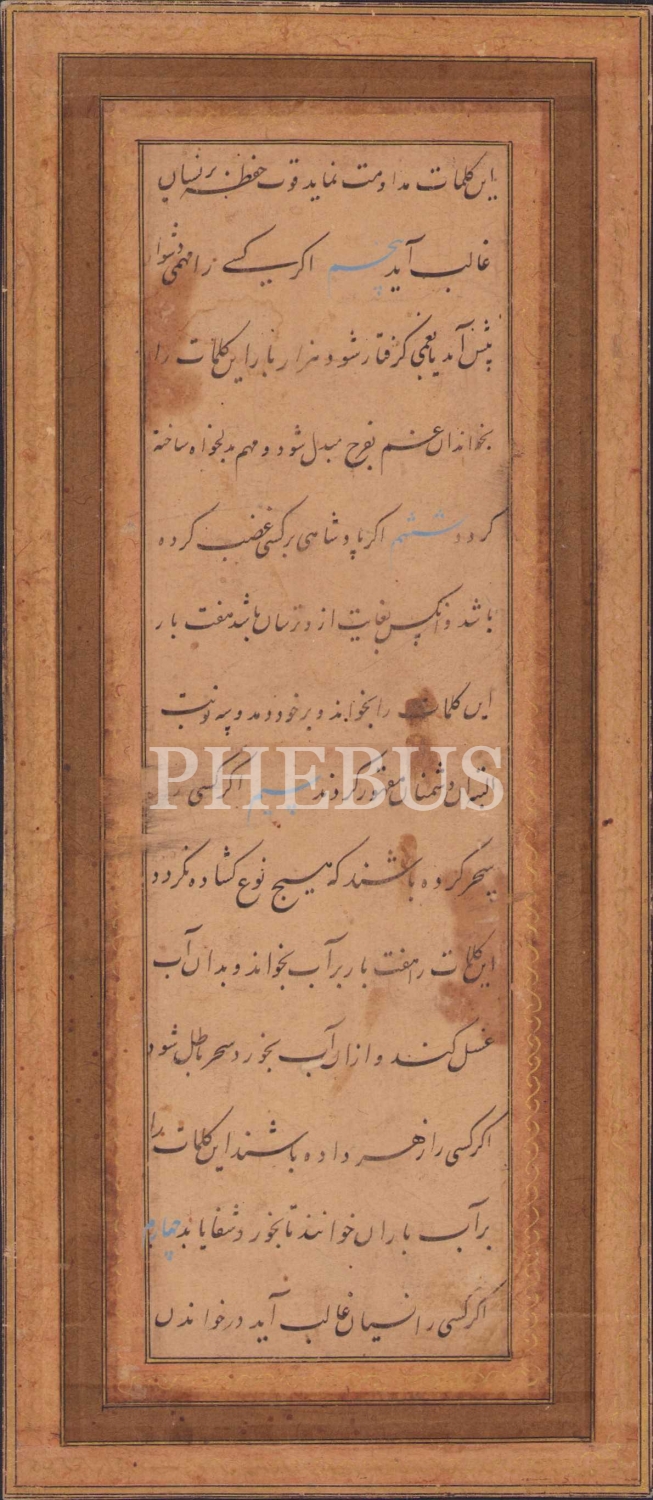 این کلمات مداومت نماید قوت حفظ بر نسیان
غالب آید پنجم اکر کسے را مهمی دشوار
پیش آمد یا بغمی کرفتار شود هزار بار این کلمات را
بخواند ان غم بفرح مبدل شود و مهم بدلخواه ساخته
کردد ششم اکر پادشاهی بر کسی غضب کرده
باشد و انکس بغایت از و ترسان باشد هفت بار
این کلمات را بخواند و بر خود دمد و به نوبت
دشمنان مقهور کردند اکر کسی
بسحر کرده باشند که هیچ نوع کشاده نکردد
این کلمات را هفت بار بر آب بخواند و بدان آب
غسل کند و ازان آب بخورد سحر باطل شود
اکر کسی را زهر داده باشند این کلمات را
بر آب باران خوانند تا بخورد شفا یابد چهارم
اکر کسی را نسیان غالب آید در خواندن
PHEBUS